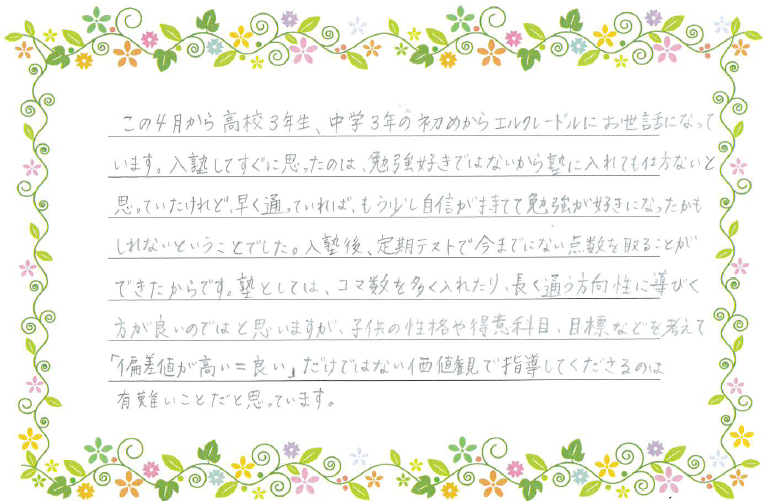 この4月から高校3年生、中学3年の初めからエルクレードルにお世話になって
います。入塾してすぐに思ったのは、勉強好きではないから塾に入れても仕方ないと
思っていたけれど、早く通っていれば、もう少し自信が持てて勉強が好きになったかも
しれないということでした。入塾後、定期テストで今までにない点数を取ることが
できたからです。塾としては、コマ数を多く入れたり、長く通う方向性に導びく
方が良いのではと思いますが、子供の性格や得意科目、目標などを考えて
「偏差値が高い=良い」だけではない価値観で指導してくださるのは
有難いことだと思っています。